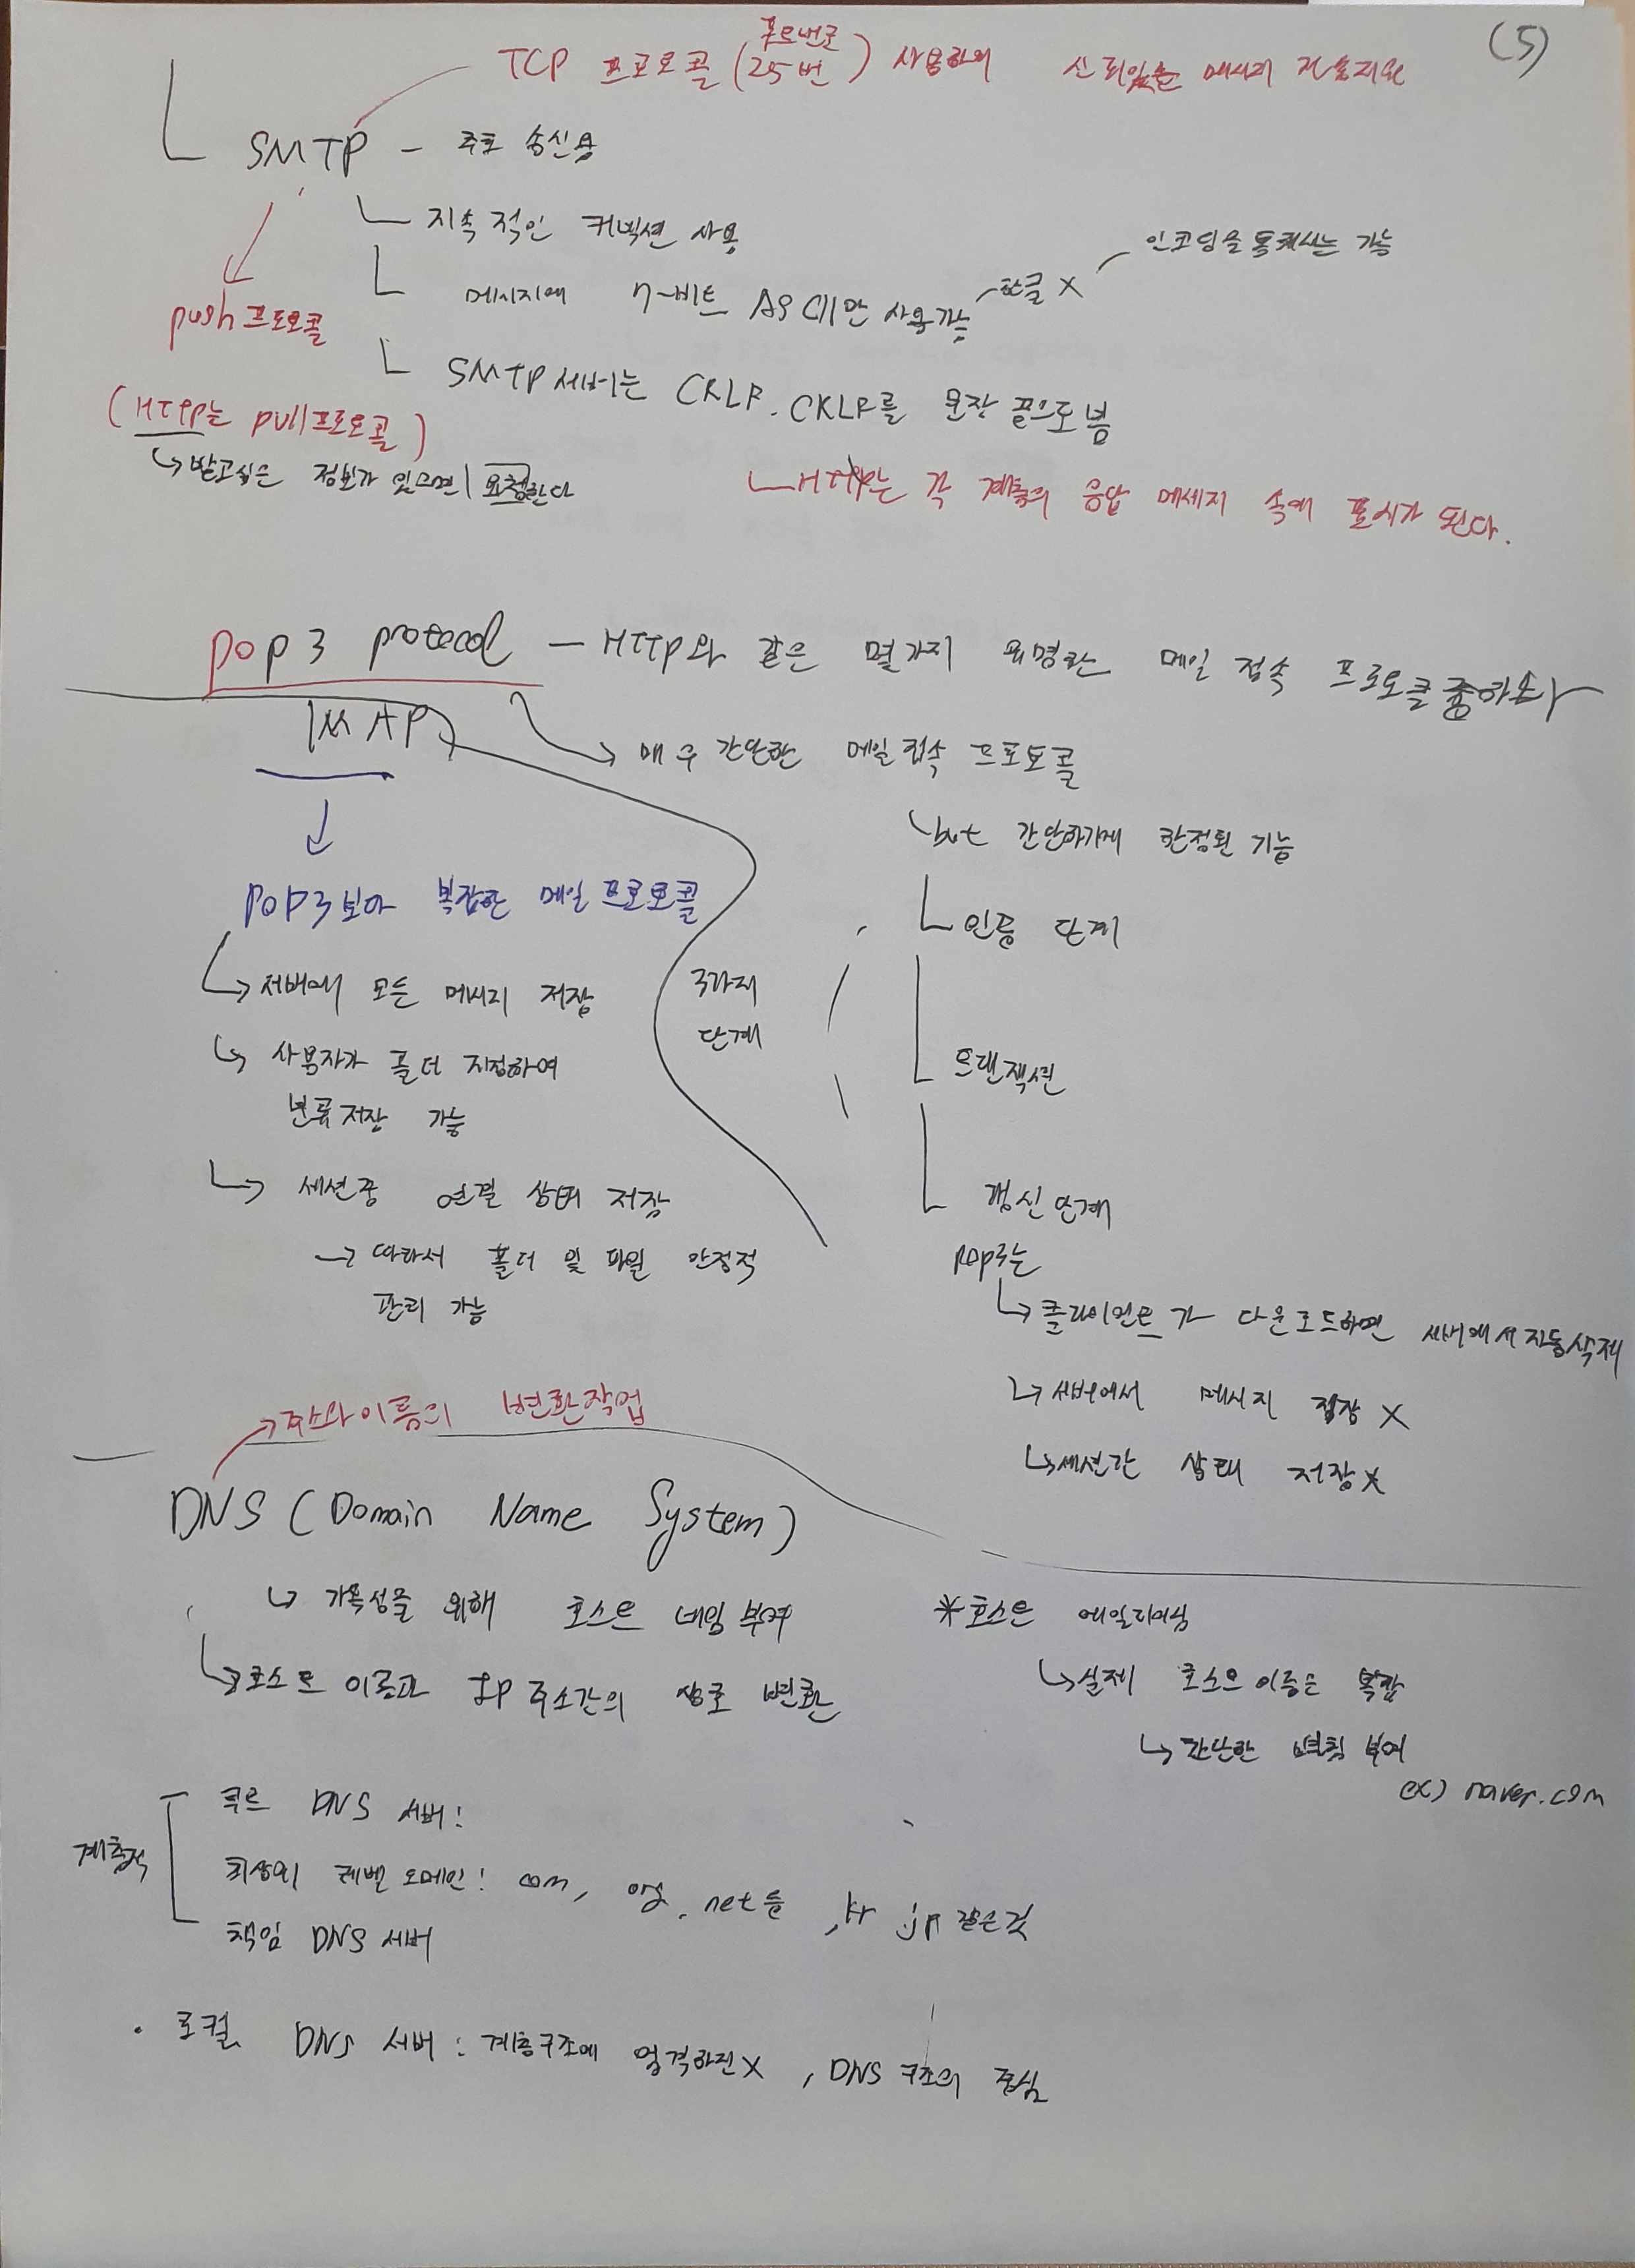 (5)
포트번호
TCP 프로토콜 (25번) 사용하여 신뢰있는 메시지 전송지원
SMTP - 주로 송신용
지속적인 커넥션 사용
인코딩을 통해서는 가능
메시지에 7-비트 ASCII만 사용가능 한글 X
push 프로토콜
SMTP 서버는 CRLF. CRLF를 문장 끝으로 봄
(HTTP는 pull 프로토콜)
받고싶은 정보가 있으면 요청한다
HTTP는 각 계층의 응답 메세지 속에 표시가 된다.
pop3 protocol - HTTP와 같은 몇가지 유명한 메일 접속 프로토콜 중 하나
IMAP
매우 간단한 메일 접속 프로토콜
but 간단하기에 한정된 기능
pop3보다 복잡한 메일 프로토콜
인증 단계
서버에 모든 메시지 저장
3가지
단계
사용자가 폴더 지정하여
트랜잭션
분류 저장 가능
세션중 연결 상태 저장
갱신 단계
따라서 폴더 및 파일 안정적
관리 가능
pop3는
클라이언트가 다운로드하면 서버에서 자동삭제
서버에서 메시지 저장 X
세션간 상태 저장 X
주소와 이름의 변환작업
DNS (Domain Name System)
가독성을 위해 호스트 네임 부여
* 호스트 에일리어싱
호스트 이름과 IP 주소간의 상호 변환
실제 호스트 이름은 복잡
간단한 별칭 부여
ex) naver.com
계층적
루트 DNS 서버:
최상위 레벨 도메인: com, org, net 등, kr jp 같은것
책임 DNS 서버
· 로컬 DNS 서버 : 계층구조에 엄격하진 X, DNS 구조의 중심